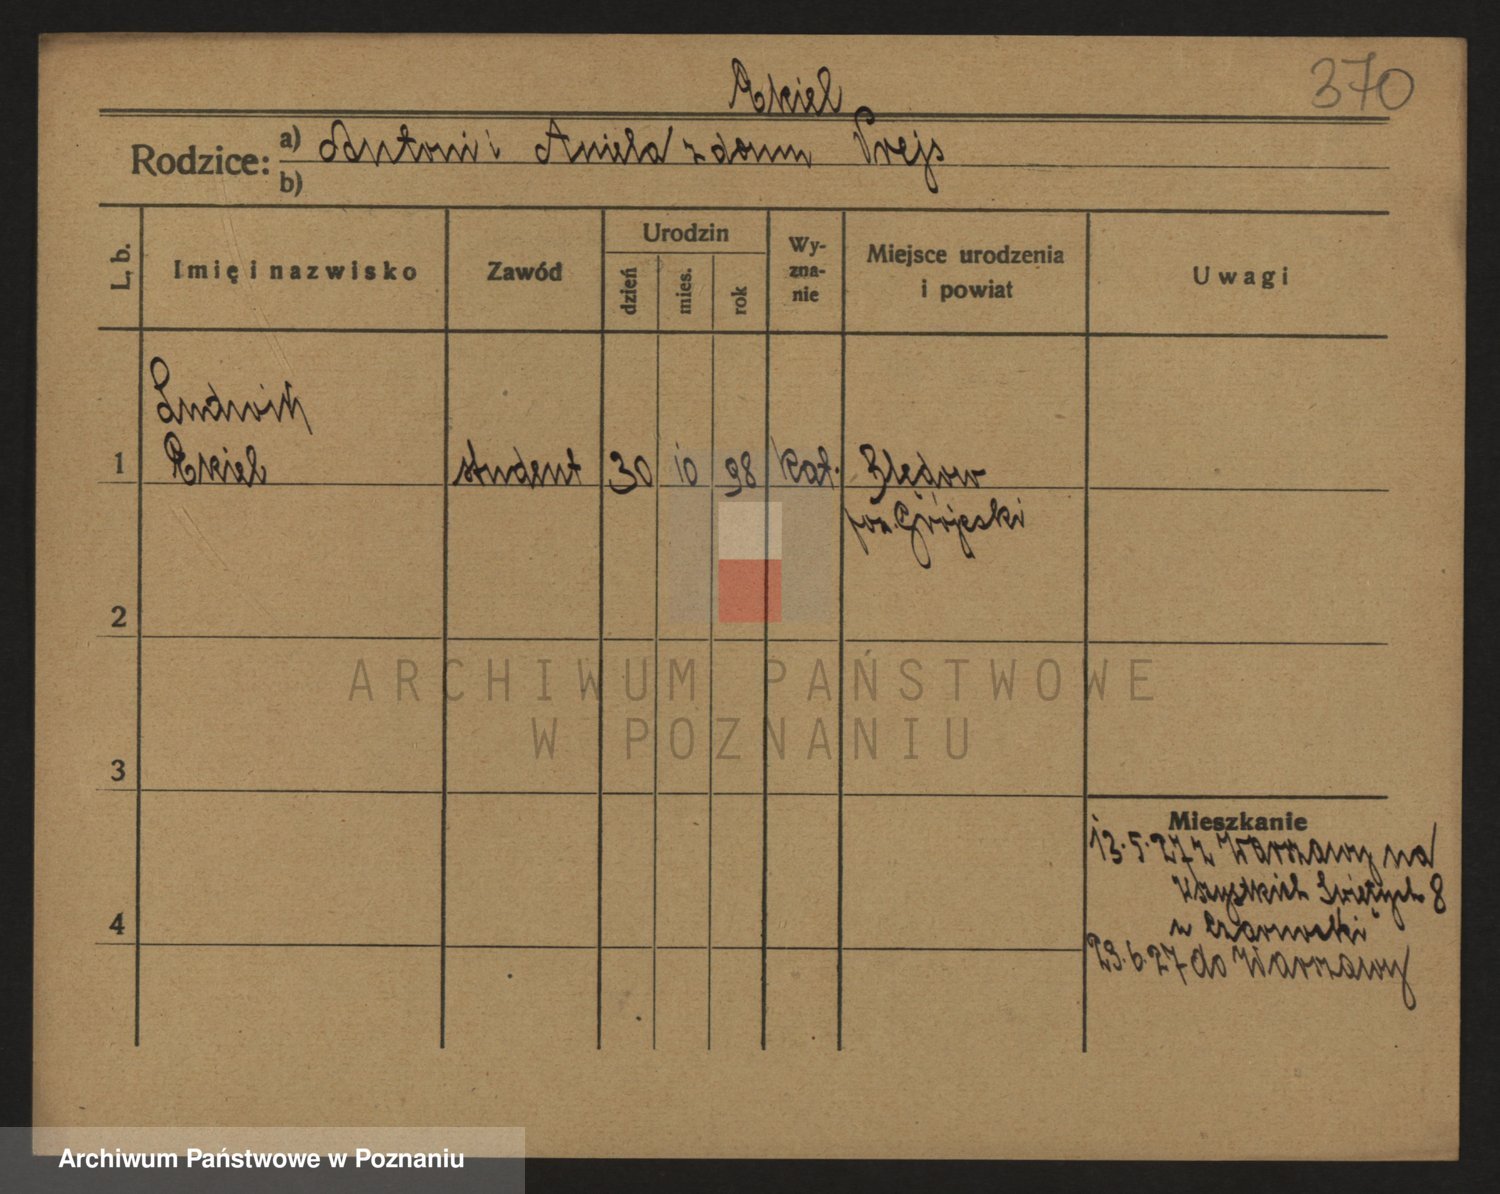 Ekiel
370
Rodzice: a) Antoni i Aniela z domu Prejs
b)
L. b.
Imię i nazwisko
Zawód
Urodzin
dzień
mies.
rok
Wy-
zna-
nie
Miejsce urodzenia
i powiat
Uwagi
Ludwik
1 Ekiel student 30 10 98 kat. Błędow
pow. Grójeski
2
3
4
Mieszkanie
13.5.27 z Warszawy na
Wszystkich Świętych 8
u
23.6.27 do Warszawy
ARCHIWUM PAŃSTWOWE
W POZNANIU
Archiwum Państwowe w Poznaniu